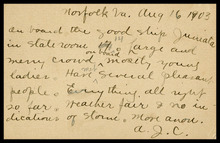 Norfolk Va. Aug 16 1903
on board the good ship Juniata
in state room 14. large and
merry crowd on board, mostly young
ladies. Have several pleasant
people. Everything all right
so far. Weather fair & no in
dications of storm. More anon.
A. J. C.